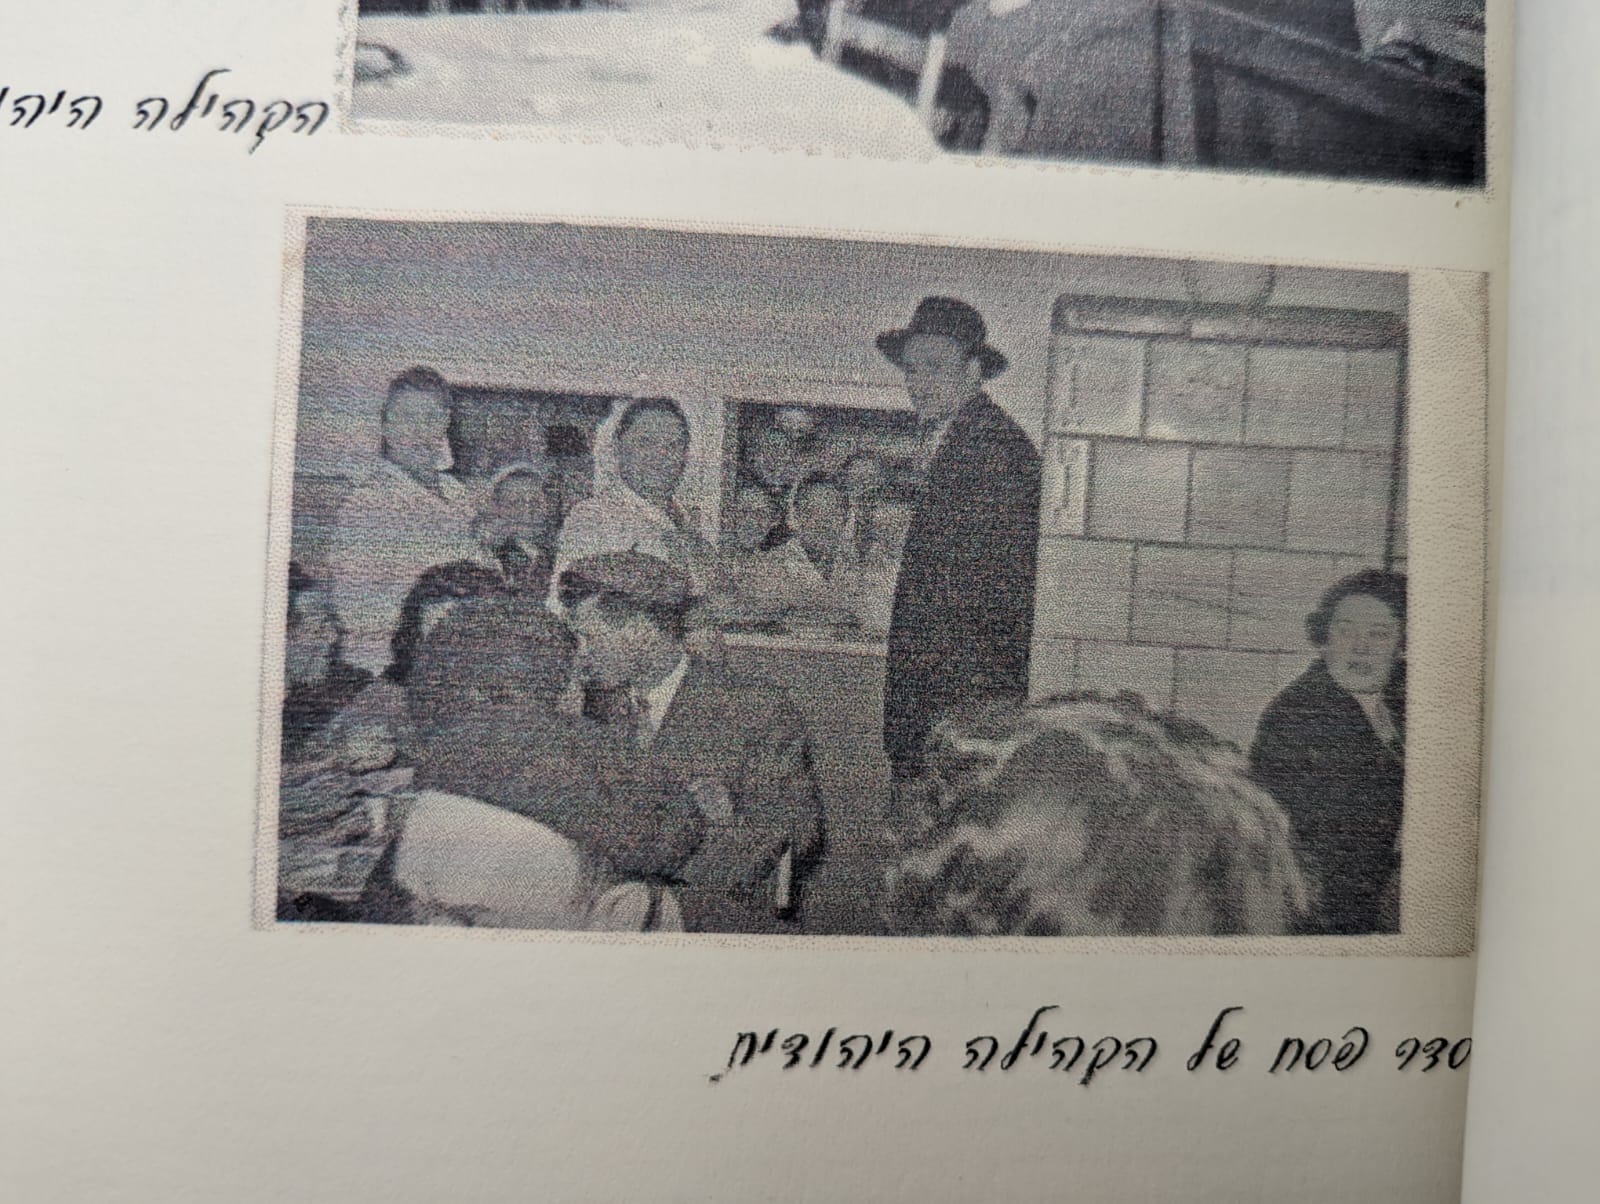 הקהילה
סדר פסח של הקהילה היהודית